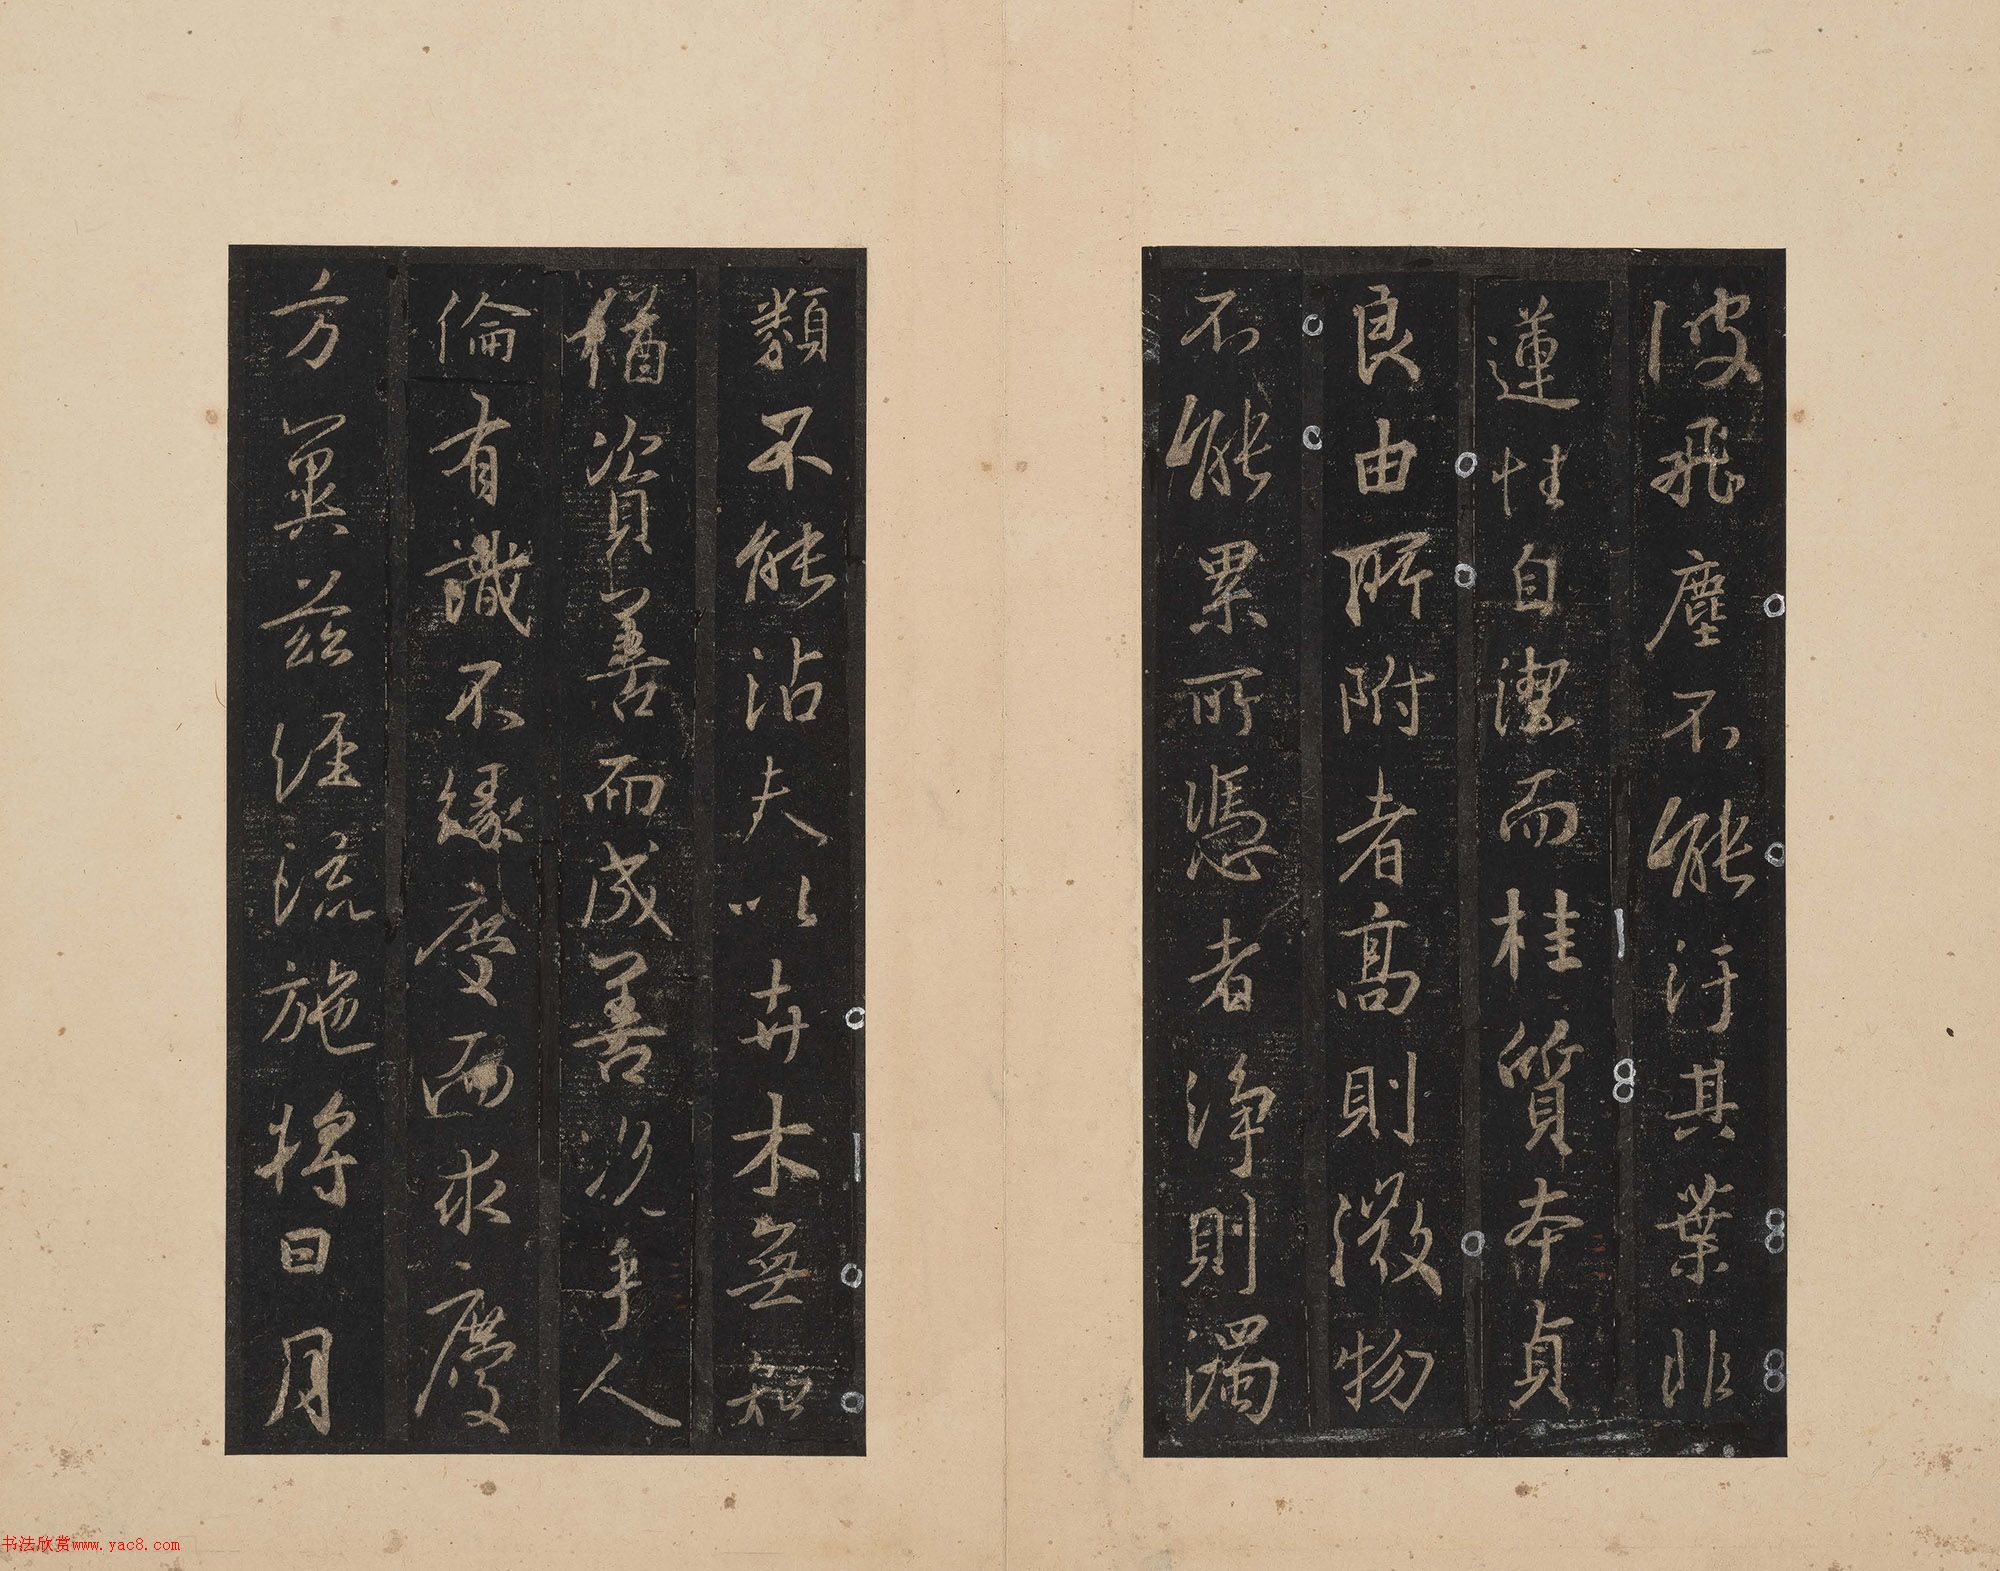 彼飛塵不能汙其葉非
蓮性自潔而桂質本貞
良由所附者高則微物
不能累所憑者淨則濁
類不能沾夫以卉木無知
猶資善而成善況乎人
倫有識不緣慶而求慶
方冀茲經流施將日月
书法欣赏www.yac8.com